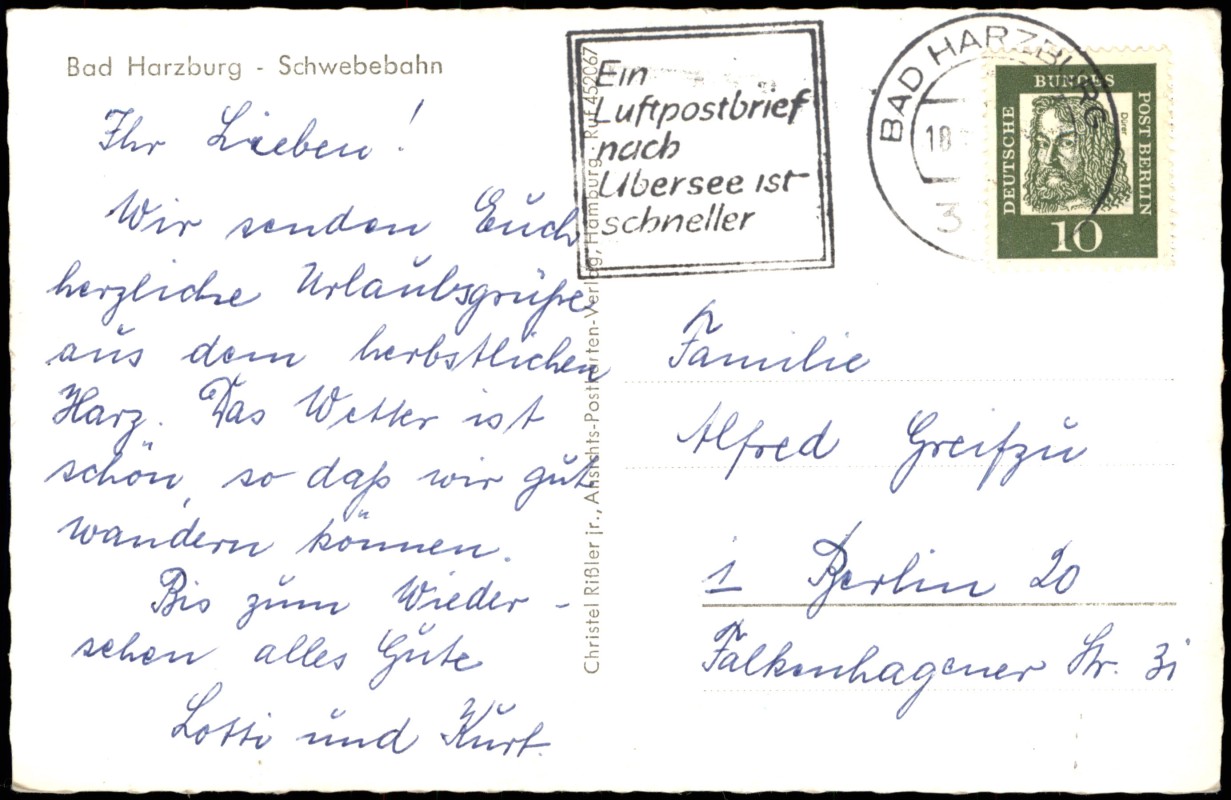 Bad Harzburg - Schwebebahn
Ihr Lieben!
Wir senden Euch
herzliche Urlaubsgrüße
aus dem herbstlichen
Harz. Das Wetter ist
schön, so daß wir gut
wandern können.
Bis zum Wieder-
sehen alles Gute
Lotti und Kurt.
Christel Rißler jr., Ansichts-Postkarten-Verlag, Hamburg · Ruf 452067
Ein
Luftpostbrief
nach
Übersee ist
schneller
BAD HARZBURG
18
3
DEUTSCHE
BUNDES
POST BERLIN
Dürer
10
Familie
Alfred Greifzu
1 Berlin 20
Falkenhagener Str. 31